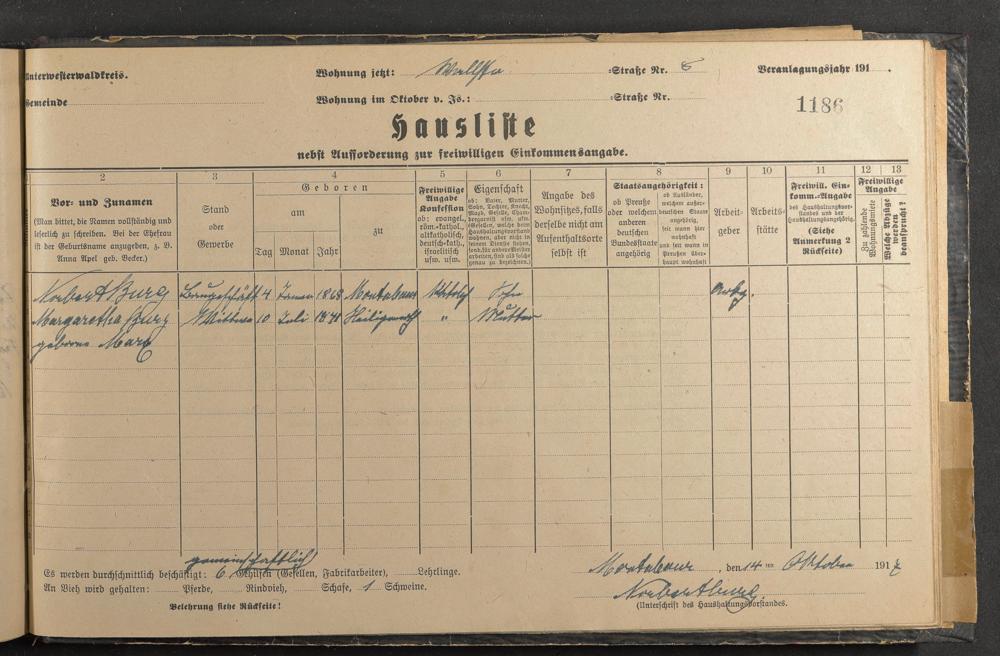 Unterwesterwaldkreis. Wohnung jetzt: Wallstr :Straße Nr. 6 Veranlagungsjahr 191 .
Gemeinde Wohnung im Oktober v. Js.: :Straße Nr.
1186
Hausliste
nebst Aufforderung zur freiwilligen Einkommensangabe.
2 3 4 5 6 7 8 9 10 11 12 13
Vor- und Zunamen
(Man bittet, die Namen vollständig und
leserlich zu schreiben. Bei der Ehefrau
ist der Geburtsname anzugeben, z. B.
Anna Apel geb. Becker.)
Stand
oder
Gewerbe
Geboren
am
zu
Tag Monat Jahr
Freiwillige
Angabe
Konfession
ob: evangel.,
röm.-kathol.,
altkatholisch,
deutsch-kath.,
israelitisch
usw. usw.
Eigenschaft
ob: Vater, Mutter,
Sohn, Tochter, Knecht,
Magd, Geselle,
Angabe des
Wohnsitzes, falls
derselbe nicht am
Aufenthaltsorte
selbst ist
Staatsangehörigkeit:
ob Preuße
oder welchem
anderen
deutschen
Bundesstaate
angehörig
ob Ausländer,
welchem außer-
deutschen Staate
angehörig,
seit wann hier
wohnhaft
und seit wann in
Preußen über-
haupt wohnhaft
Arbeit-
geber
Arbeits-
stätte
Freiwill. Ein-
komm.-Angabe
des Haushaltungsvor-
standes und der
Haushaltungsangehörig.
(Siehe
Anmerkung 2
Rückseite)
Freiwillige
Angabe
Zu zahlende
Wohnungsmiete
Welche Abzüge
werden
beansprucht?
Norbert Burg Baugeschäft 4 Januar 1868 Montabaur kathol. Sohn
Margaretha Burg Wittwe 10 Juli Heiligenroth " Mutter
geborene Marx
gemeinschaftlich
Es werden durchschnittlich beschäftigt: 6 Gehilfen (Gesellen, Fabrikarbeiter), Lehrlinge.
An Vieh wird gehalten: Pferde, Rindvieh, Schafe, 1 Schweine.
Belehrung siehe Rückseite!
Montabaur, den 14 ten Oktober 191
Norbert Burg
(Unterschrift des Haushaltungsvorstandes.